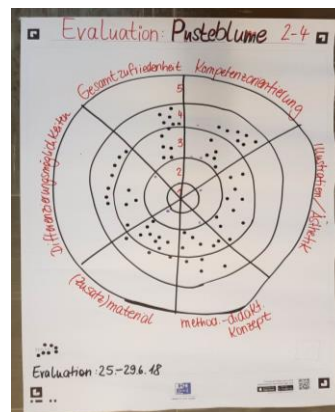 Evaluation: Pusteblume 2-4
Gesamtzufriedenheit
Kompetenzorientierung
Illustration / Ästhetik
method.-didakt.
Konzept
(Zusatz)material
Differenzierungsmöglichkeiten
5
4
3
2
1
Evaluation: 25.-29.6.18